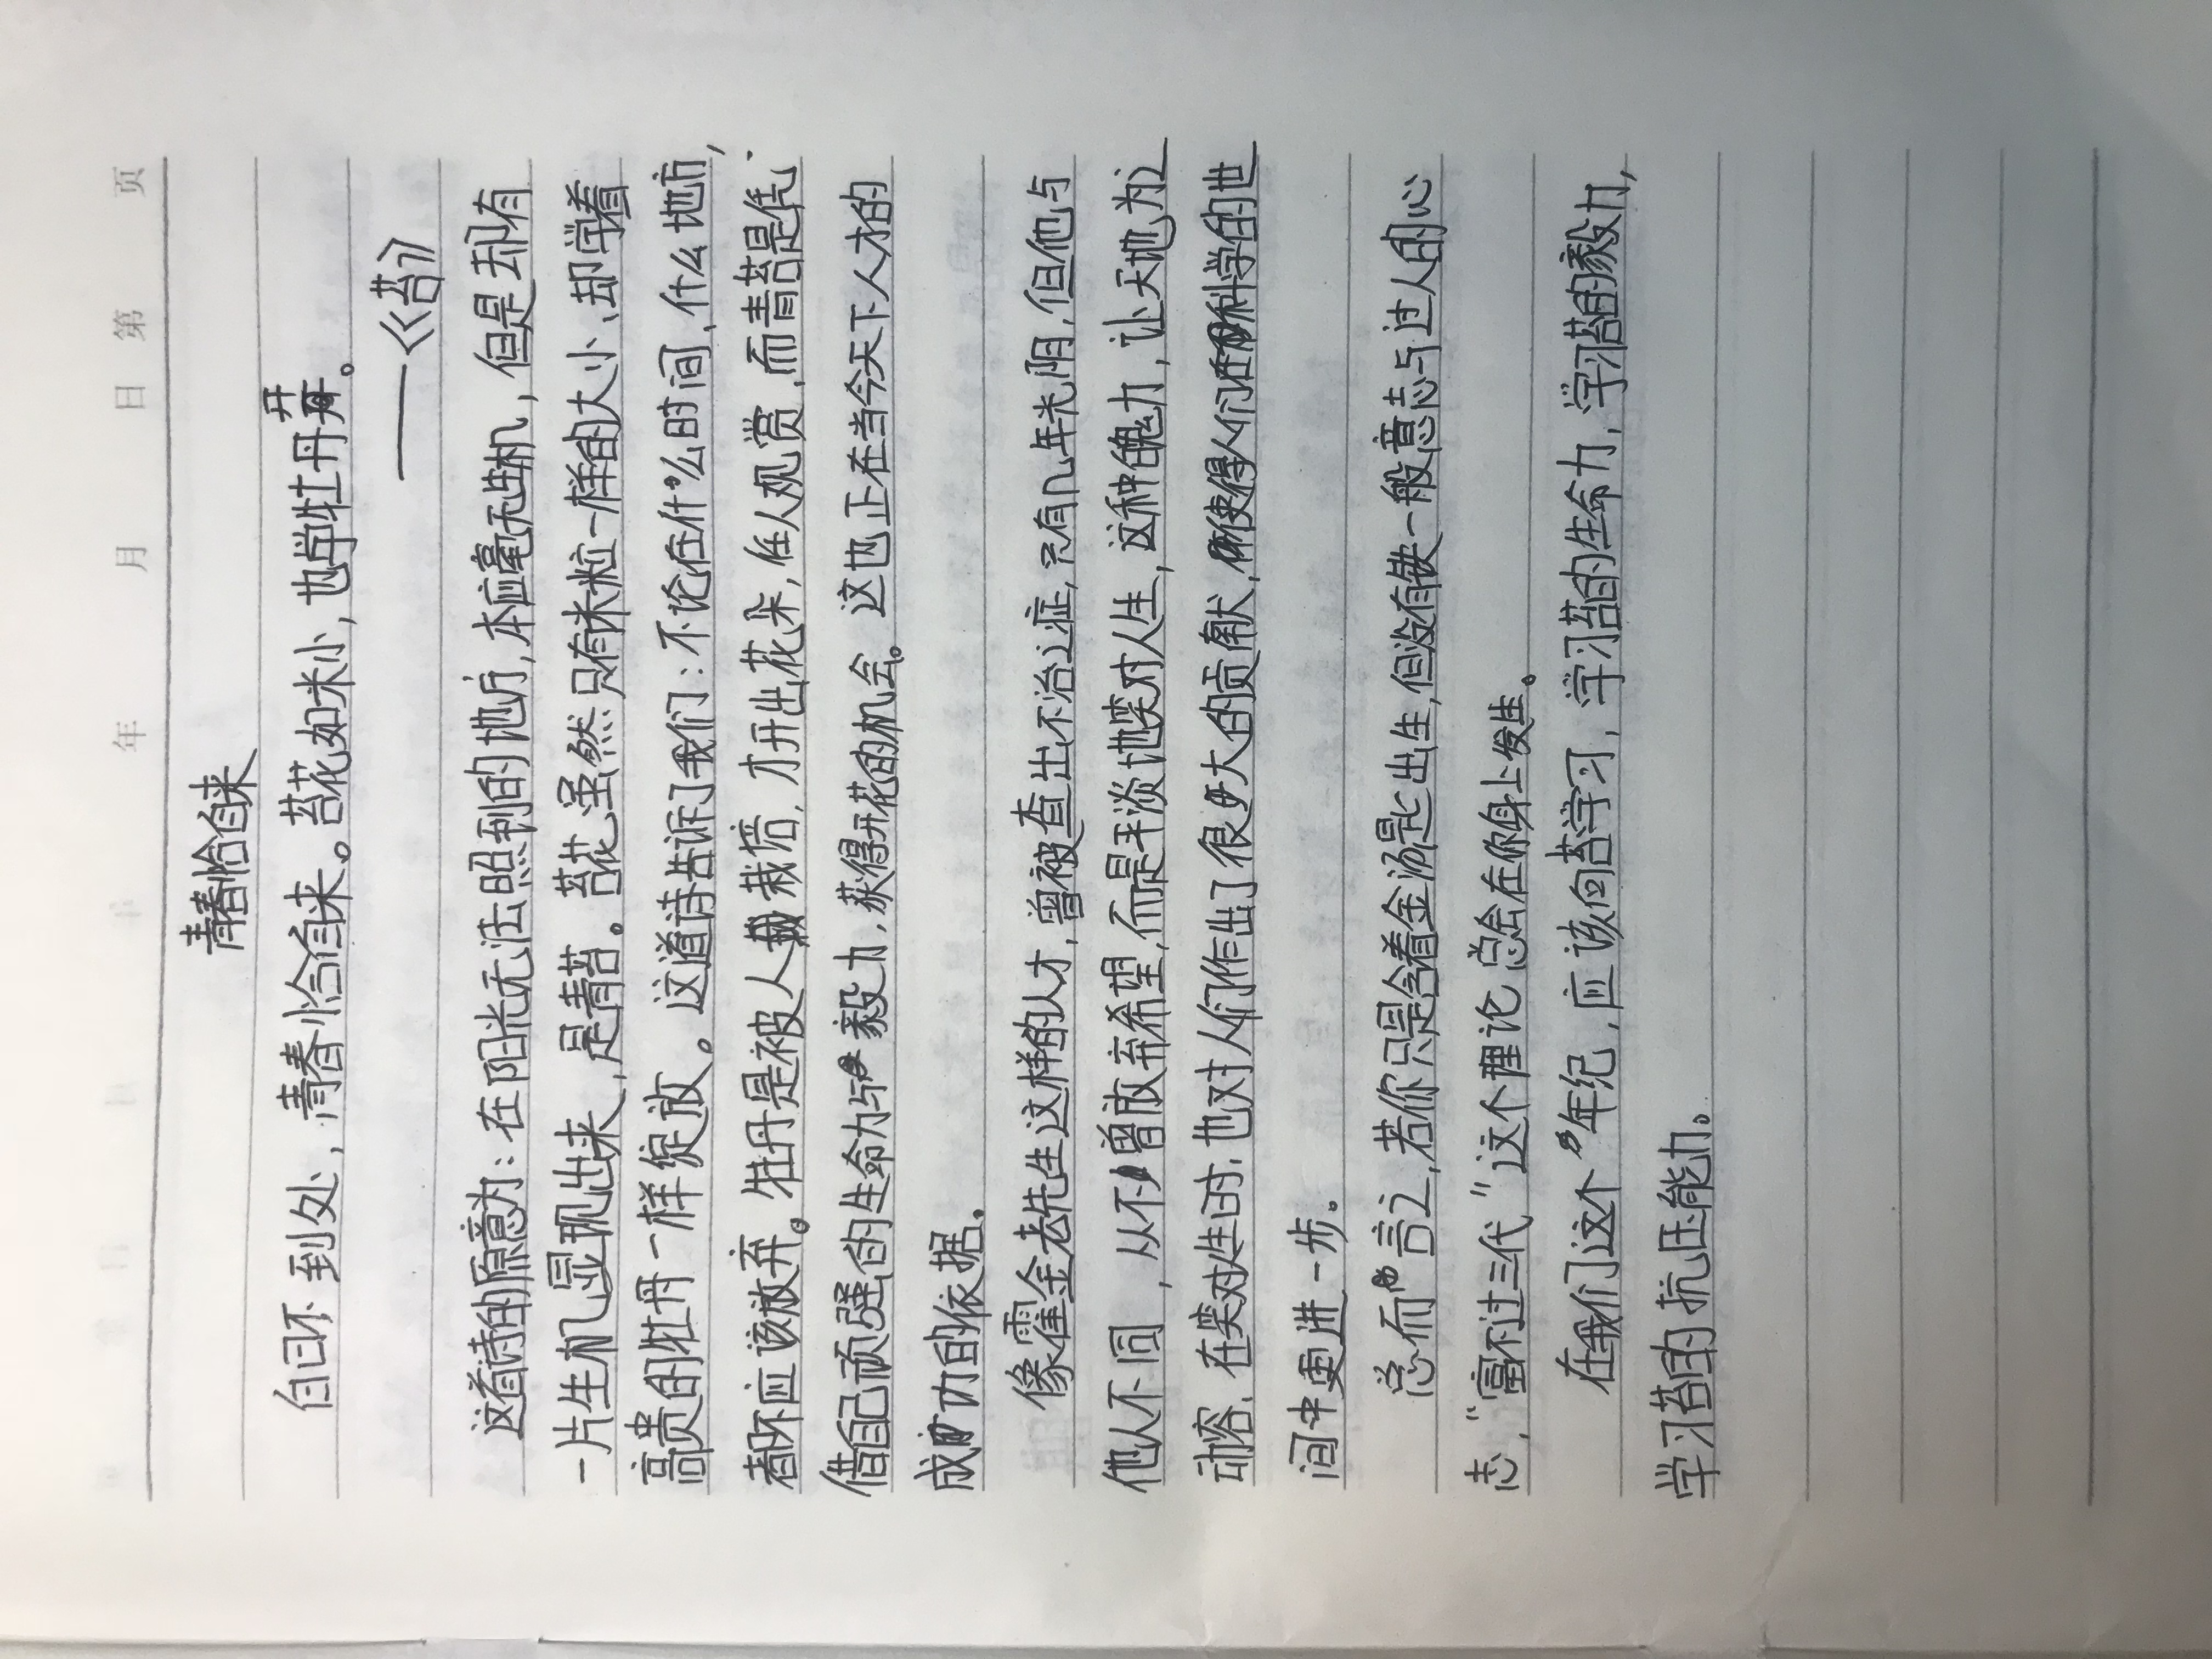 年 月 日 第 页
青春恰自来
白日不到处，青春恰自来。苔花如米小，也学牡丹开。
——《苔》
这首诗的原意为：在阳光无法照到的地方，本应毫无生机，但是却有
一片生机显现出来，是青苔。苔花虽然只有米粒一样的大小，却学着
高贵的牡丹一样绽放。这道诗告诉了我们：不论在什么时间，什么地方，
都不应该放弃。牡丹是被人栽培，才开出花朵，任人观赏，而青苔是凭
借自己顽强的生命力与毅力，获得开花的机会。这也正在当今天下人才的
成功的依据。
像霍金老先生这样的人才，曾被查出不治之症，只有几年光阴，但他与
他人不同，从不曾放弃希望，而是平淡地笑对人生，这种魄力，让天地为之
动容，在笑对生时，也对人们作出了很大的贡献，使得人们在科学的世
间中更进一步。
总而言之，若你只是含着金汤匙出生，但没有铁一般意志与过人的心
志，“富不过三代”这个理论总会在你身上发生。
在我们这个年纪，应该向苔学习，学习苔的生命力，学习苔的毅力，
学习苔的抗压能力。